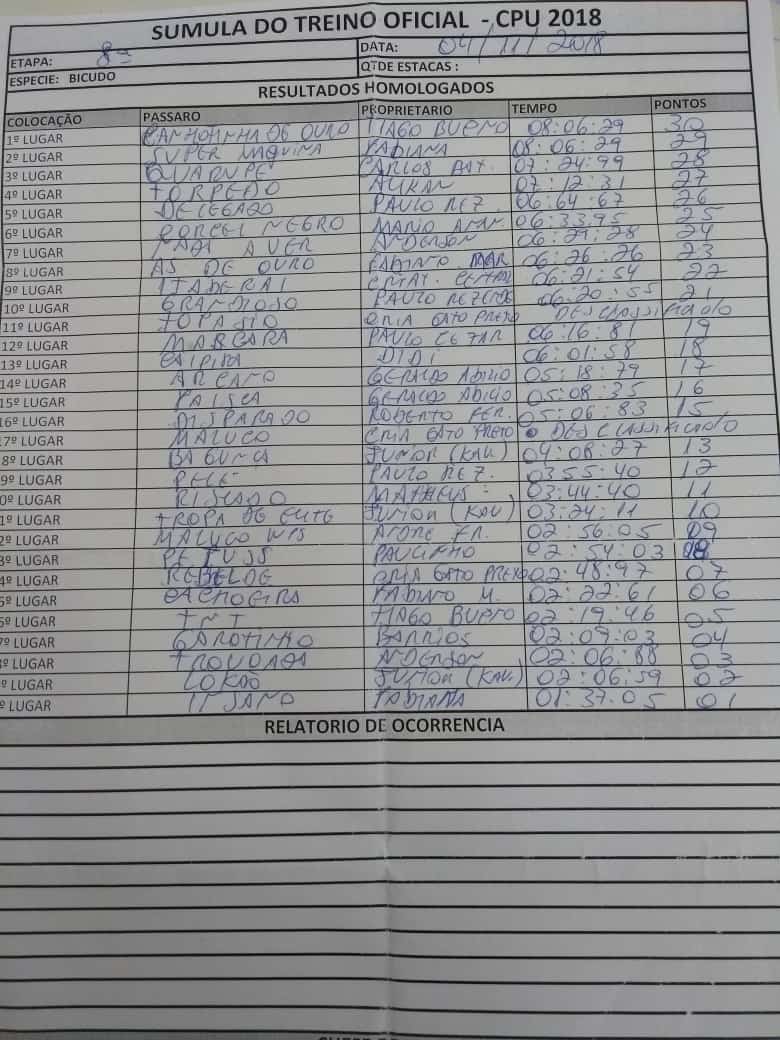 SUMULA DO TREINO OFICIAL - CPU 2018
ETAPA: 8ª DATA: 04/11/2018
ESPECIE: BICUDO QTDE ESTACAS :
RESULTADOS HOMOLOGADOS
COLOCAÇÃO PASSARO PROPRIETARIO TEMPO PONTOS
1º LUGAR CANHOTINHA DE OURO TIAGO BUENO 08:06:29 30
2º LUGAR SUPER MAQUINA FABIANA 08:06:29 29
3º LUGAR CARLOS BAT. 07:24:99 28
4º LUGAR TORPEDO ALIKAN 07:12:31 27
5º LUGAR DELEGADO PAULO REZ. 06:64:67 26
6º LUGAR CORCEL NEGRO MARIO 06:33:95 25
7º LUGAR A VER ANDERSON 06:27:28 24
8º LUGAR AS DE OURO FABIANO MAR 06:26:26 23
9º LUGAR ITABERAI 06:21:54 22
10º LUGAR GRANDIOSO PAULO REZENDE 06:20:55 21
11º LUGAR TOPASIO CRIA GATO PRETO DESCLASSIFICADO
12º LUGAR MASCARA PAULO CEZAR 06:16:81 19
13º LUGAR CAIPIRA DIDI 06:01:58 18
14º LUGAR ARCANO GERALDO ABIDIO 05:18:79 17
15º LUGAR FAISCA GERALDO ABIDIO 05:08:35 16
16º LUGAR DISPARADO ROBERTO FER. 05:06:83 15
17º LUGAR MALUCO CRIA GATO PRETO DESCLASSIFICADO
8º LUGAR BAGUNÇA JUNIOR (KAU) 04:08:27 13
9º LUGAR PELE PAULO REZ. 03:55:40 12
0º LUGAR RISCADO MATHEUS 03:44:40 11
1º LUGAR TROPA DE ELITE JUNIOR (KAU) 03:24:11 10
2º LUGAR MALUCO ANDRE FR. 02:56:05 09
3º LUGAR PAULINHO 02:54:03 08
4º LUGAR REBELDE CRIA GATO PRETO 02:48:97 07
5º LUGAR CACHOEIRA FABIANO M. 02:22:61 06
6º LUGAR TNT TIAGO BUENO 02:19:46 05
7º LUGAR GAROTINHO BARRIOS 02:09:03 04
º LUGAR TROVOADA ANDERSON 02:06:88 03
º LUGAR LOKÃO JUNIOR (KAU) 02:06:59 02
º LUGAR INSANO FABIANA 01:37:05 01
RELATORIO DE OCORRENCIA